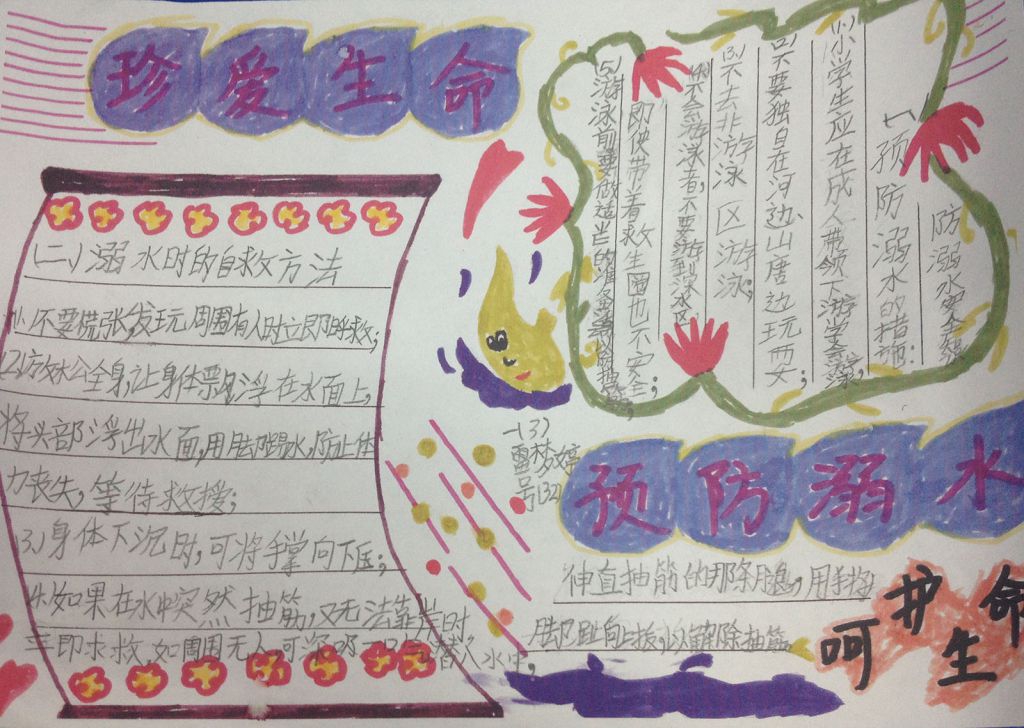 珍爱生命
防溺水安全
(一)预防溺水的措施:
(1)小学生应在成人带领下游
(2)不要独自在河边山唐边玩耍;
(3)不去非游泳区游泳;
(4)不会游泳者,不要游到深水区
即使带着救生圈也不安全;
(5)游泳前要做适当的准备
(二)溺水时的自救方法
(1)不要慌张,发现周围有人时立即呼救;
(2)放松全身,让身体飘浮在水面上,
将头部浮出水面,用脚踢水,防止体
力丧失,等待救援;
(3)身体下沉时,可将手掌向下压;
(4)如果在水中突然抽筋,又无法靠岸时
立即求救,如周围无人,可深吸一口气潜入水中,
伸直抽筋的那条腿,用手将
脚趾向上扳,以解除抽筋。
一(3)
雷梦婷
号(32)
预防溺水
呵护生命